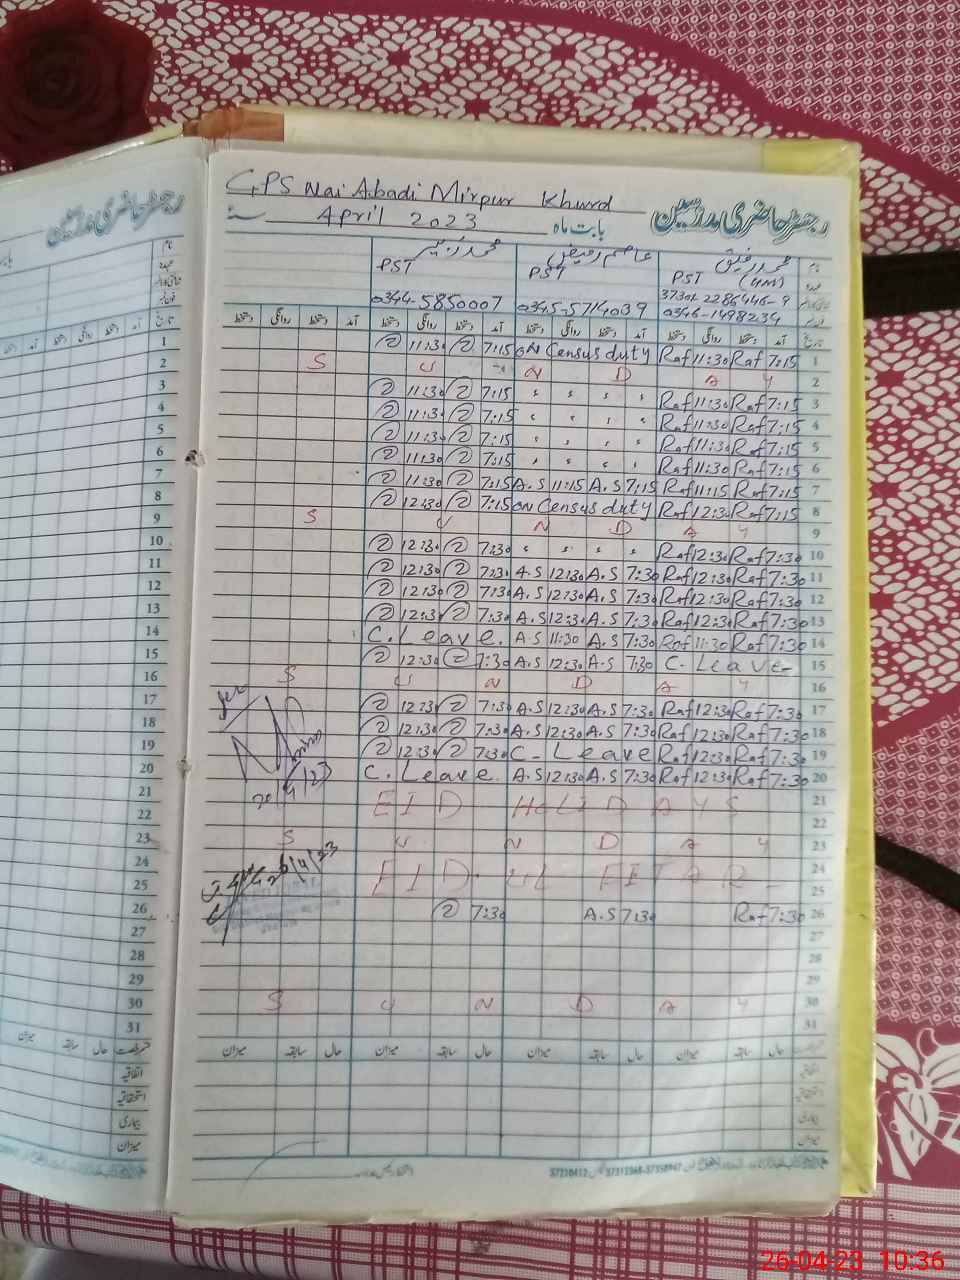 GPS Nai Abadi Mirpur Khurd
رجسٹر حاضری مدرسین
April 2023 بابت ماہ
محمد رفیق عاصم رفیق
PST PST PST (HM)
37301-2286446-9
0344-5850007 0345-5714039 0346-1498234
تاریخ آمد دستخط روانگی دستخط آمد دستخط روانگی دستخط آمد دستخط روانگی دستخط آمد دستخط روانگی دستخط
1 11:30 7:15 on Census duty Raf 11:30 Raf 7:15 1
2 S U N D A Y 2
3 11:30 7:15 " " " " Raf 11:30 Raf 7:15 3
4 11:30 7:15 " " " " Raf 11:30 Raf 7:15 4
5 11:30 7:15 " " " " Raf 11:30 Raf 7:15 5
6 11:30 7:15 " " " " Raf 11:30 Raf 7:15 6
7 11:30 7:15 A.S 11:15 A.S 7:15 Raf 11:15 Raf 7:15 7
8 12:30 7:15 on Census duty Raf 12:30 Raf 7:15 8
9 S U N D A Y 9
10 12:30 7:30 " " " " Raf 12:30 Raf 7:30 10
11 12:30 7:30 A.S 12:30 A.S 7:30 Raf 12:30 Raf 7:30 11
12 12:30 7:30 A.S 12:30 A.S 7:30 Raf 12:30 Raf 7:30 12
13 12:30 7:30 A.S 12:30 A.S 7:30 Raf 12:30 Raf 7:30 13
14 C. Leave. A.S 11:30 A.S 7:30 Raf 11:30 Raf 7:30 14
15 12:30 7:30 A.S 12:30 A.S 7:30 C. Leave 15
16 S U N D A Y 16
17 12:30 7:30 A.S 12:30 A.S 7:30 Raf 12:30 Raf 7:30 17
18 12:30 7:30 A.S 12:30 A.S 7:30 Raf 12:30 Raf 7:30 18
19 12:30 7:30 C. Leave Raf 12:30 Raf 7:30 19
20 C. Leave. A.S 12:30 A.S 7:30 Raf 12:30 Raf 7:30 20
20/4/23
21 EID HOLIDAYS 21
22 22
23 S U N D A Y 23
24 EID UL FITAR 24
26/4/23
25 25
26 7:30 A.S 7:30 Raf 7:30 26
27 27
28 28
29 29
30 S U N D A Y 30
31 31
حال سابقہ میزان حال سابقہ میزان حال سابقہ میزان حال سابقہ میزان
اتفاقیہ
استحقاقیہ
بیماری
میزان
26-04-23 10:36